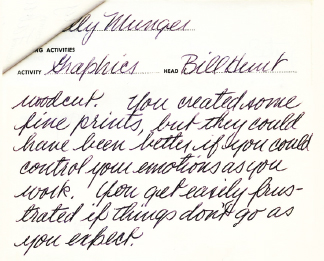 lly Munger
NG ACTIVITIES
ACTIVITY Graphics HEAD Bill Hunt
woodcut. You created some
fine prints, but they could
have been better if you could
control your emotions as you
work. You get easily frus-
trated if things don't go as
you expect.